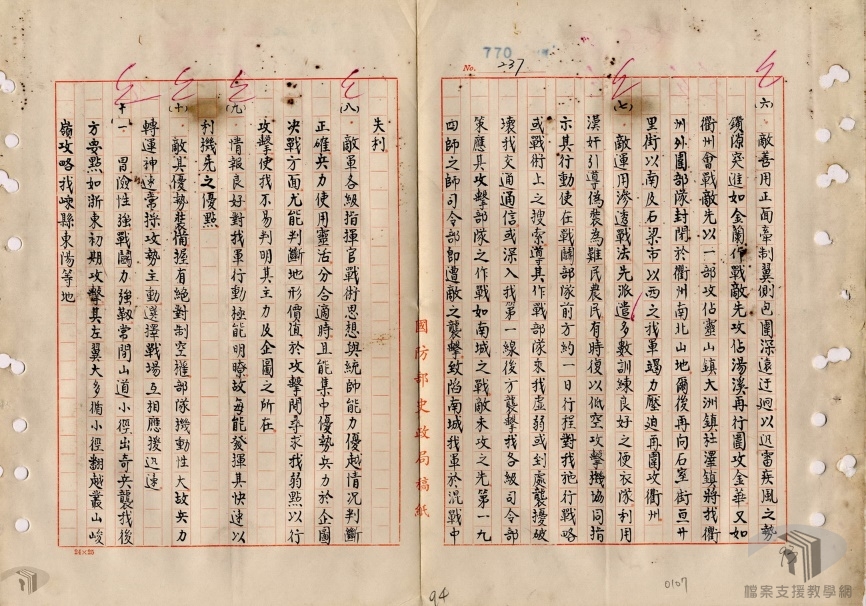 770
No. 237
(六) 敵善用正面牽制翼側包圍深遠迂迴以迅雷疾風之勢
鑽隙突進如金蘭作戰敵先攻佔湯溪再行圍攻金華又如
衢州會戰敵先以一部攻佔靈山鎮大洲鎮社澤鎮將我衢
州外圍部隊封閉於衢州南北山地爾後再向石室街亘廿
里街以南及石梁市以西之我軍竭力壓迫再圍攻衢州
(七) 敵運用滲透戰法先派遣多數訓練良好之便衣隊利用
漢奸引導偽裝為難民農民有時復以低空攻擊機協同指
示其行動使在戰鬪部隊前方約一日行程對我施行戰略
或戰術上之搜索導其作戰部隊來我虛弱或到處襲擾破
壞我交通通信或深入我第一線後方襲擊我各級司令部
策應其攻擊部隊之作戰如南城之戰敵未攻之先第一九
四師之師司令部即遭敵之襲擊致陷南城我軍於混戰中
國防部史政局稿紙
失利
(八) 敵軍各級指揮官戰術思想與統帥能力優越情況判斷
正確兵力使用靈活分合適時且能集中優勢兵力於企圖
決戰方面尤能判斷地形價值於攻擊間尋求我弱點以行
攻擊使我不易判明其主力及企圖之所在
(九) 情報良好對我軍行動極能明瞭故每能發揮其快速以
利機先之優點
(十) 敵具優勢裝備握有絕對制空權部隊機動性大故兵力
轉運神速常採攻勢主動選擇戰場互相應援迅速
十一 冒險性強戰鬪力強靱常閒山道小徑出奇兵襲我後
方要點如浙東初期攻擊其左翼大多循小徑翻越叢山峻
嶺攻略我嵊縣東陽等地
24×25
94
0107
檔案支援教學網